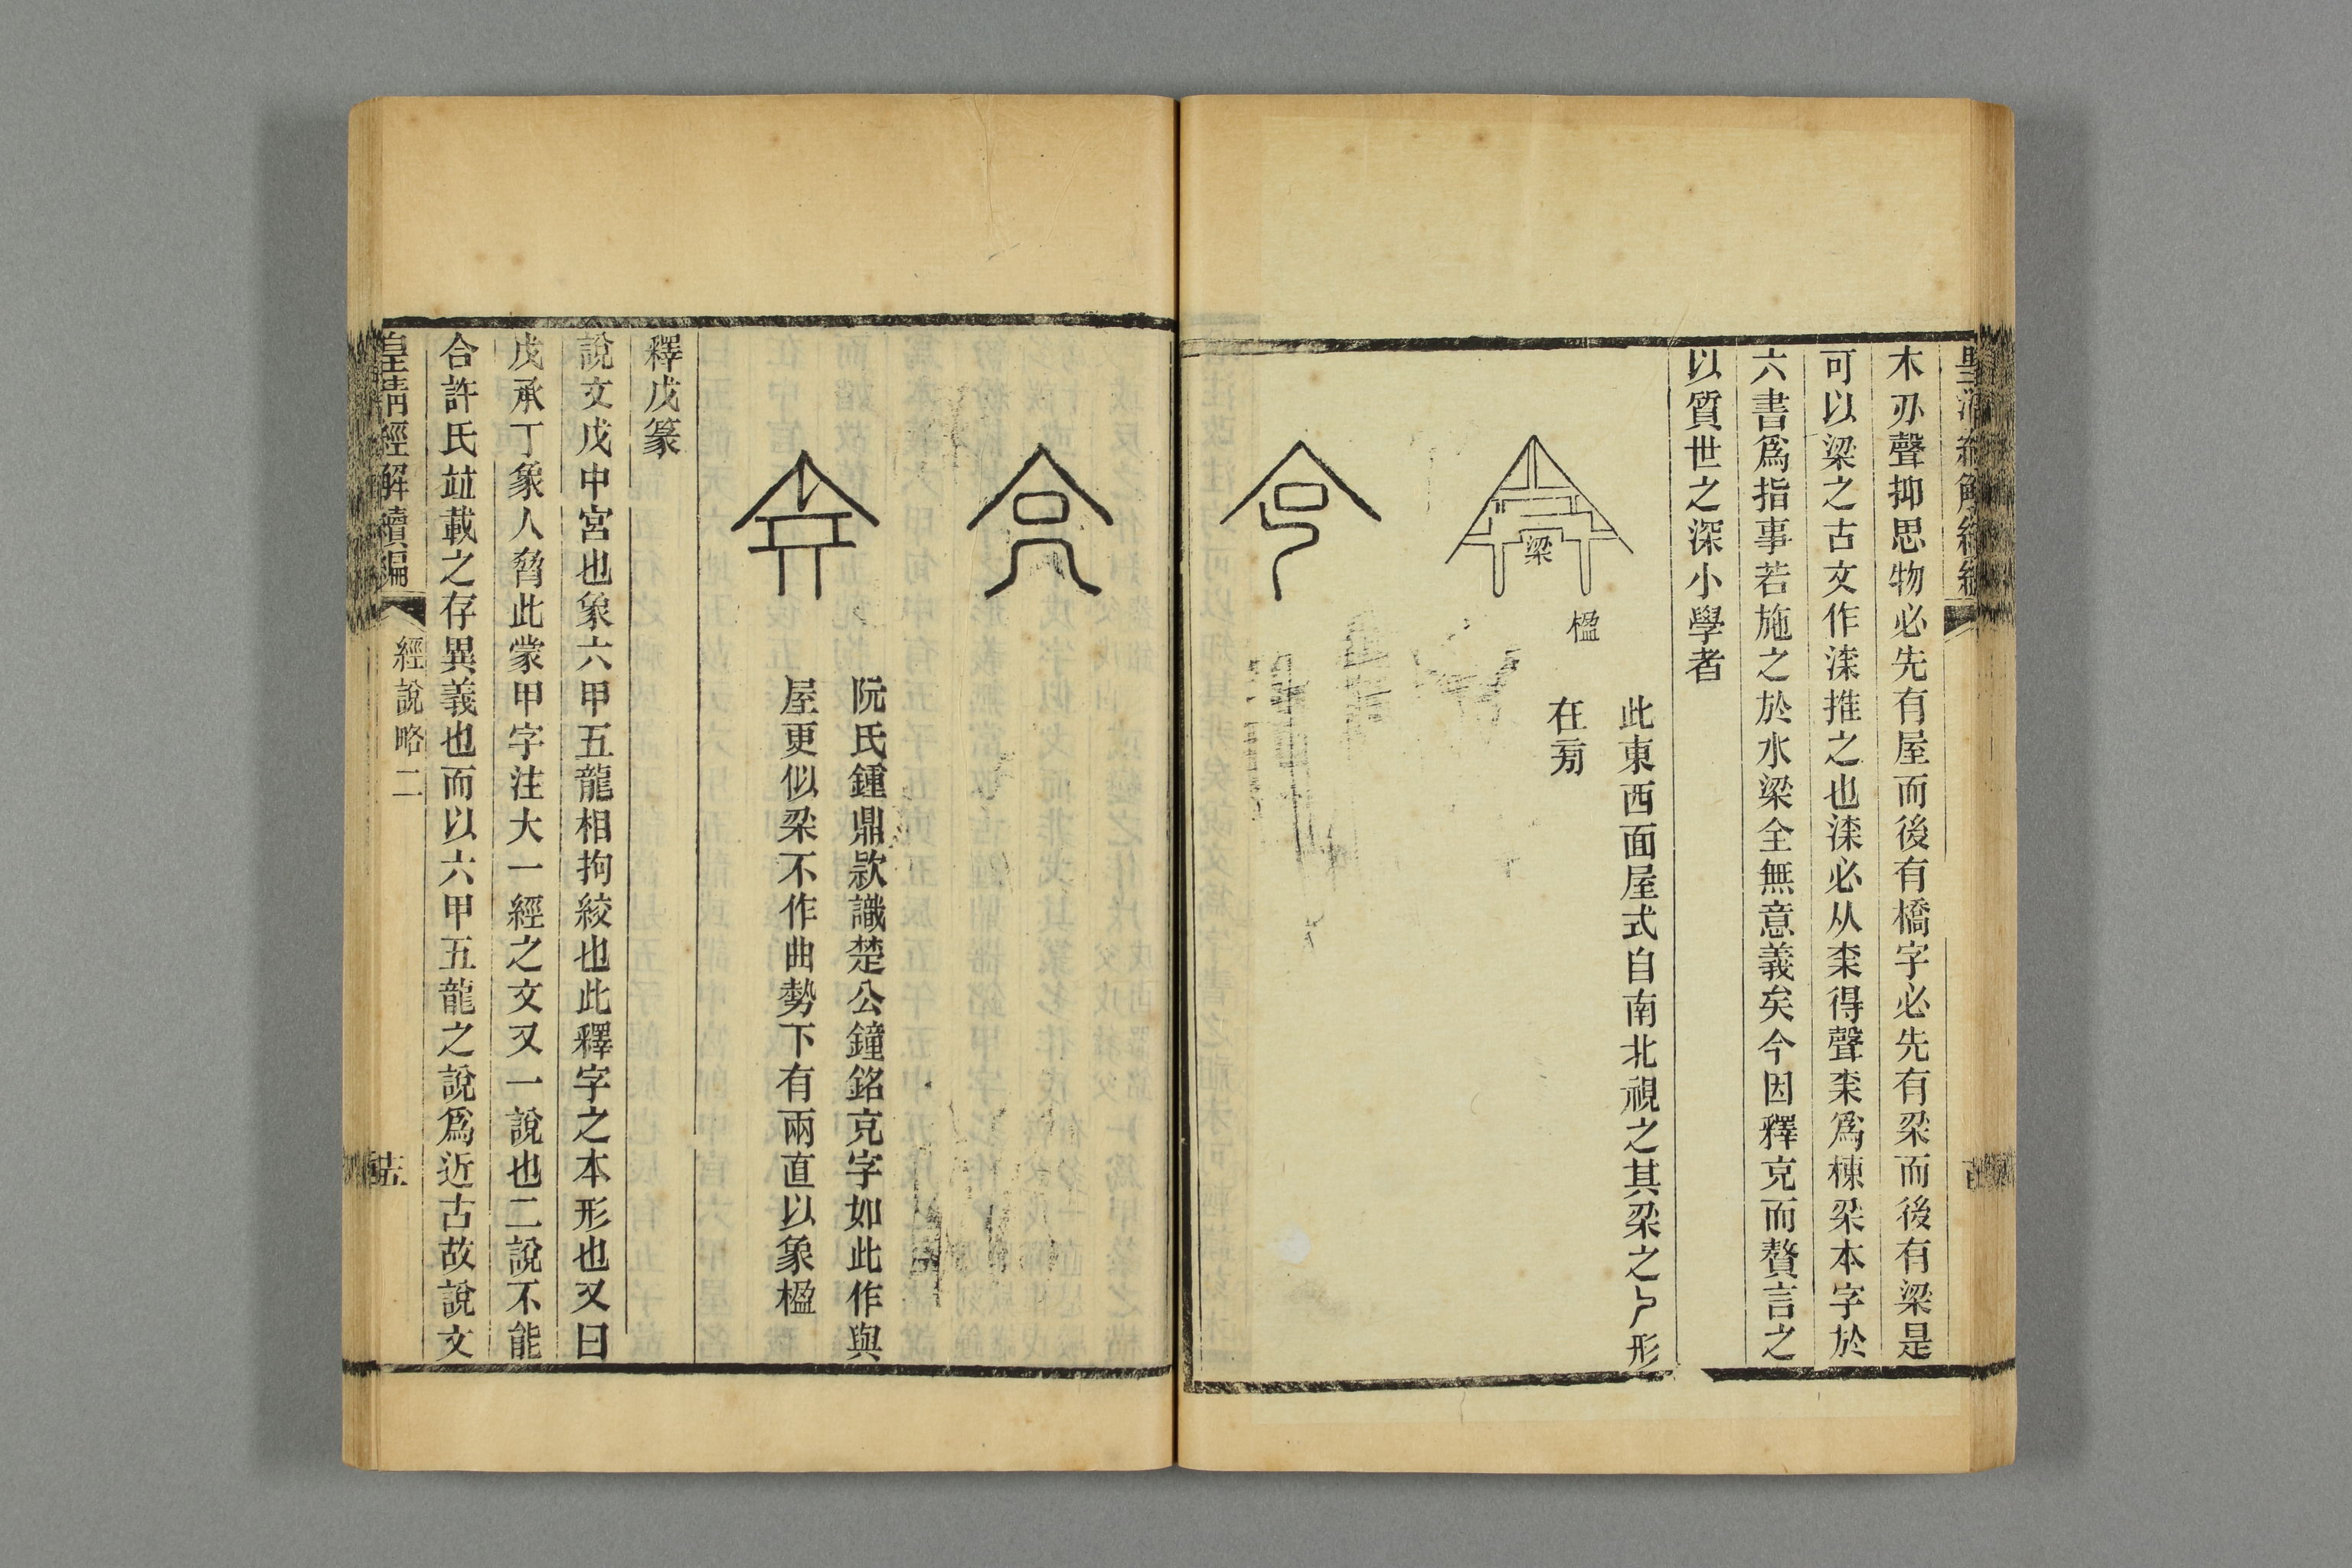 木刅聲抑思物必先有屋而後有橋字必先有梁而後有梁是
可以梁之古文作渿推之也渿必从㭉得聲㭉為棟梁本字於
六書爲指事若施之於水梁全無意義矣今因釋克而贅言之
以質世之深小學者
梁
楹
此東西面屋式自南北視之其梁之形
在㫄
阮氏鍾鼎款識楚公鐘銘克字如此作與
屋更似梁不作曲勢下有兩直以象楹
釋戊篆
說文戊中宮也象六甲五龍相拘絞也此釋字之本形也又曰
戊承丁象人脅此蒙甲字注大一經之文又一說也二說不能
合許氏竝載之存異義也而以六甲五龍之說爲近古故說文
皇清經解續編
經說略二